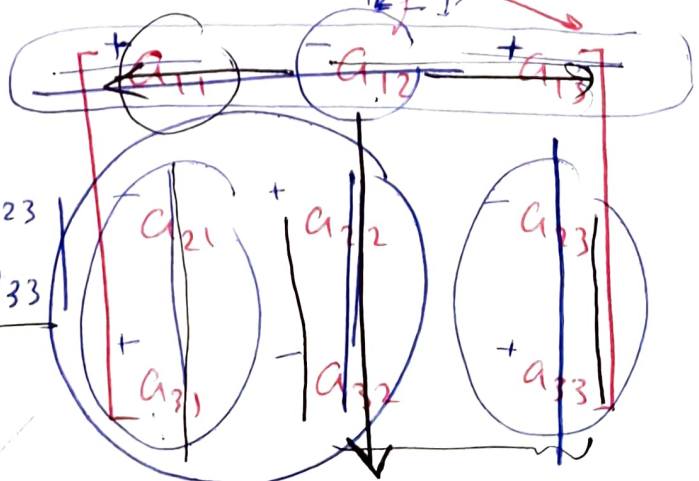 + a11 - a12 + a13
23 - a21 + a22 - a23
33 + a31 - a32 + a33